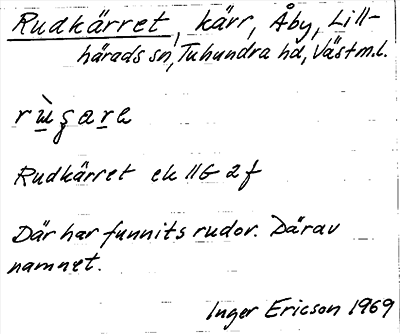 Rudkärret, kärr, Åby, Lill-
härads sn, Tuhundra hd, Västml.
Rudkärret ek 11G 2f
Där har funnits rudor. Därav
namnet.
Inger Ericson 1969